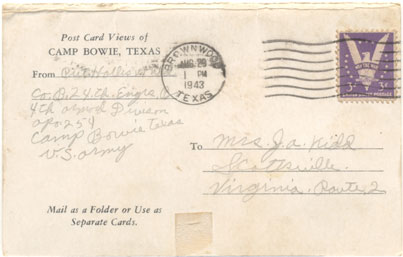 Post Card Views of
CAMP BOWIE, TEXAS
From Pvt. Hollis
Co. B. 24th. Engrs.
4th armored Division
apo. 254
Camp Bowie Texas
U.S. army
BROWNWOOD
AUG 29
1 PM
1943
TEXAS
WIN THE WAR
3¢ 3¢
To Mrs. J.a. Kidd
Scottsville.
Virginia. Route 2
Mail as a Folder or Use as
Separate Cards.